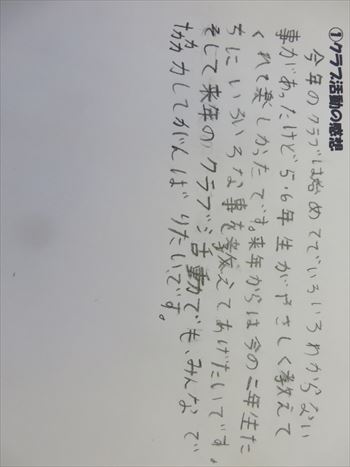 ①クラブ活動の感想
今年のクラブは始めてでいろいろわからない
事があったけど5・6年生がやさしく教えて
くれて楽しかったです。来年からは今の二年生た
ちにいろいろな事を教えてあげたいです。
そして来年のクラブ活動でも、みんなで
協力してがんばりたいです。